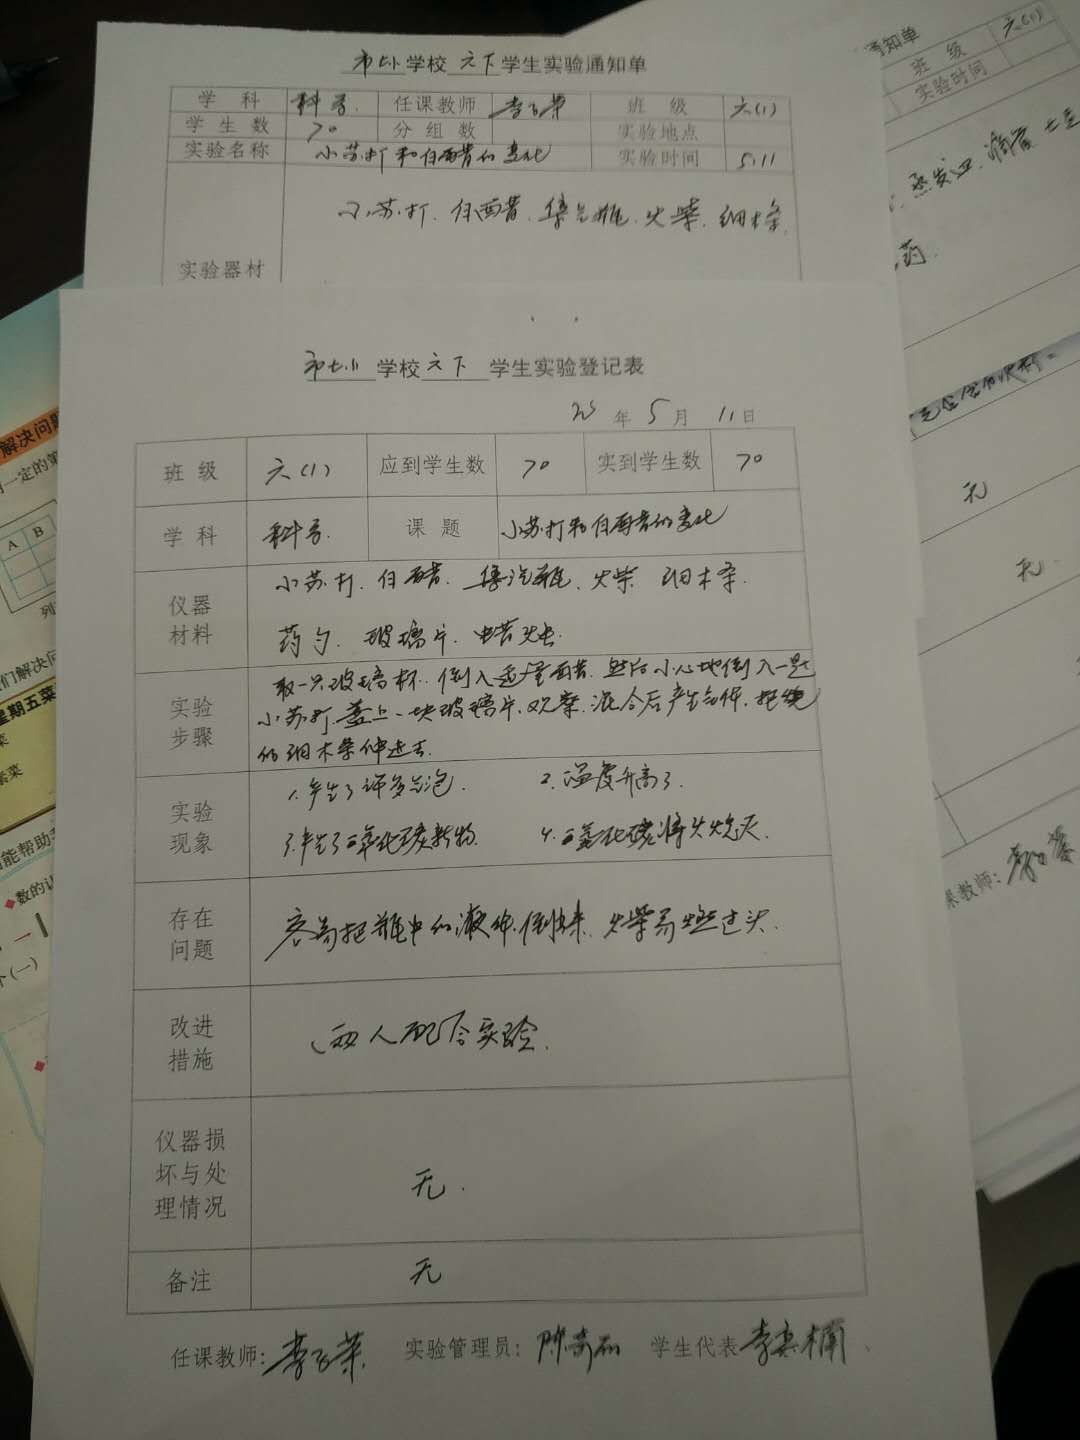 市七小学校 六下 学生实验通知单
学科 科学 任课教师 班级 六(1)
学生数 70 分组数 实验地点
实验名称 小苏打和白醋的变化 实验时间 5.11
小苏打、白醋、集气瓶、火柴、细木条
实验器材
市七小学校六下 学生实验登记表
25年5月11日
班级 六(1) 应到学生数 70 实到学生数 70
学科 科学 课题 小苏打和白醋的变化
仪器材料
小苏打、白醋、集气瓶、火柴 细木条
药勺、玻璃片、
实验步骤
取一只玻璃杯、倒入适量白醋、然后小心地倒入一些
小苏打、盖上一块玻璃片、观察、混合后产生气体、把燃
的细木条伸进去
实验现象
1.产生了许多气泡. 2.温度升高了.
3.产生了二氧化碳新物 4.二氧化碳将火熄灭.
存在问题
容易把瓶中的液体倒出来、火柴易燃过头.
改进措施
两人配合实验.
仪器损坏与处理情况
无.
备注 无
任课教师: 实验管理员: 学生代表
通知单
班级 六(1)
实验时间
蒸发皿、滴管
药.
无
无.
课教师:
解决问题
A B
们解决问
星期五菜
素菜
能帮助
数的认
个(一)